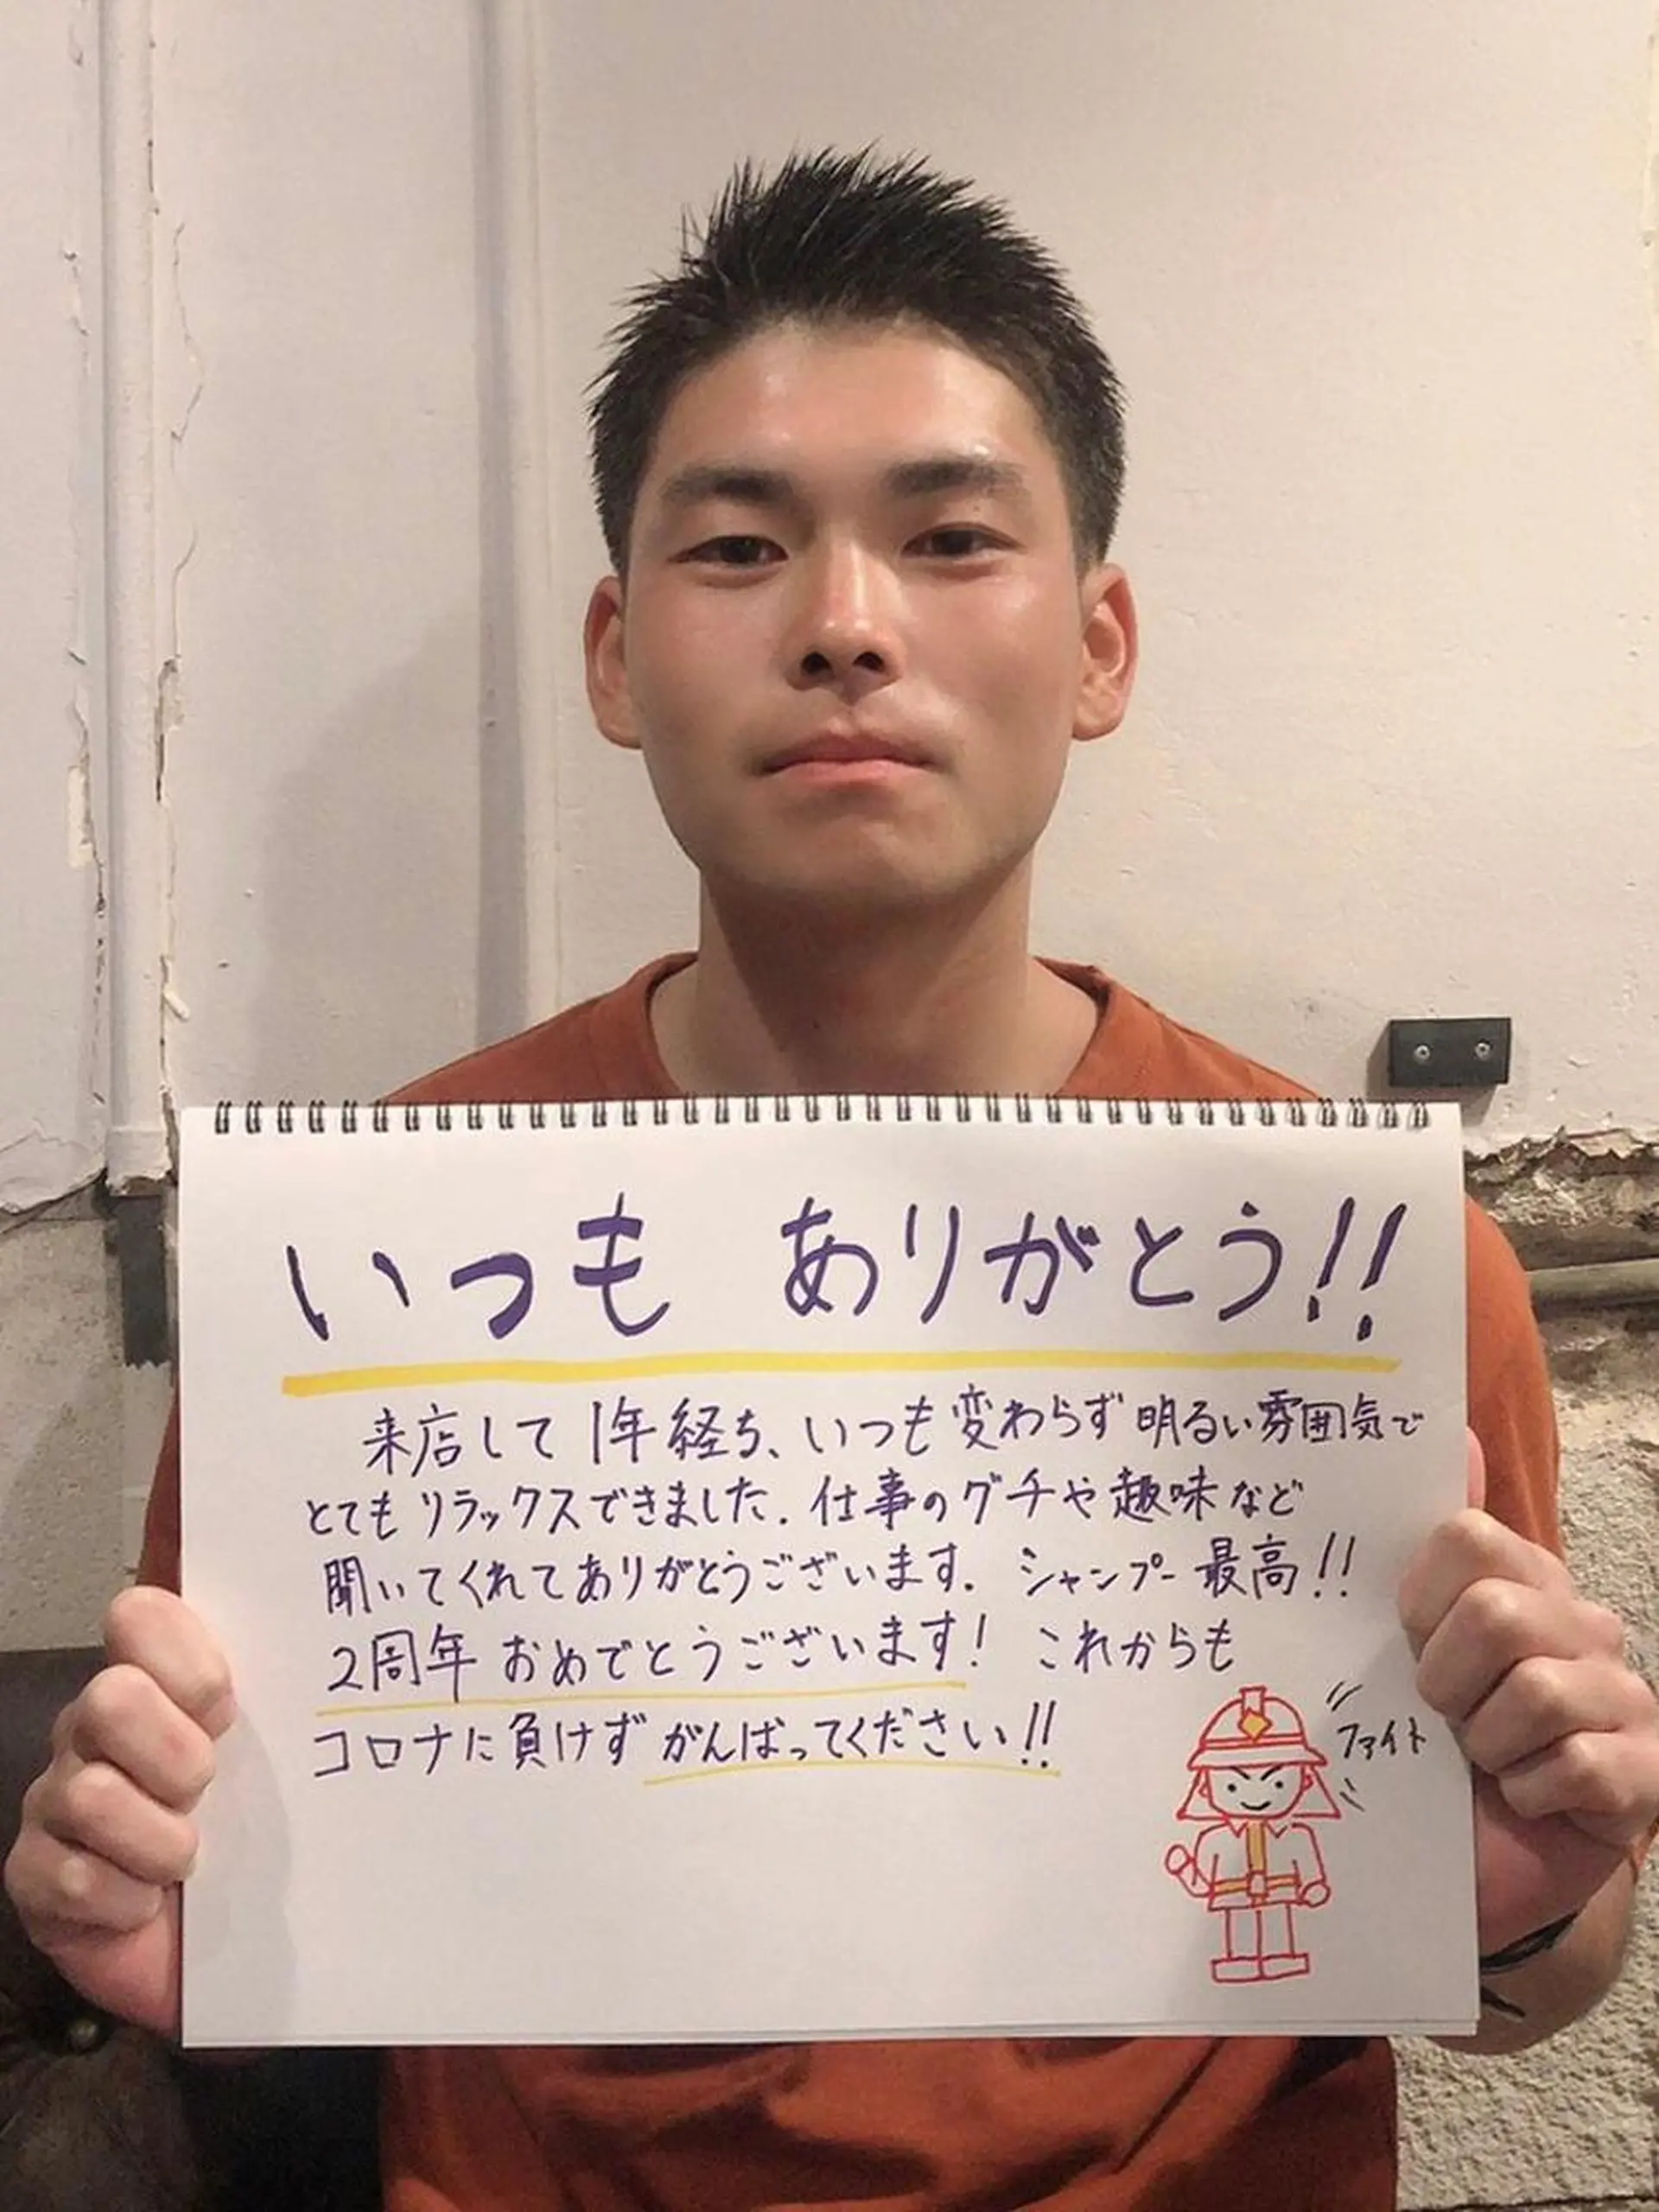 いつも ありがとう!!
来店して 1年経ち、いつも変わらず明るい雰囲気で
とてもリラックスできました。仕事のグチや趣味など
聞いてくれてありがとうございます。シャンプー最高!!
2周年おめでとうございます! これからも
コロナに負けず がんばってください!!
ファイト